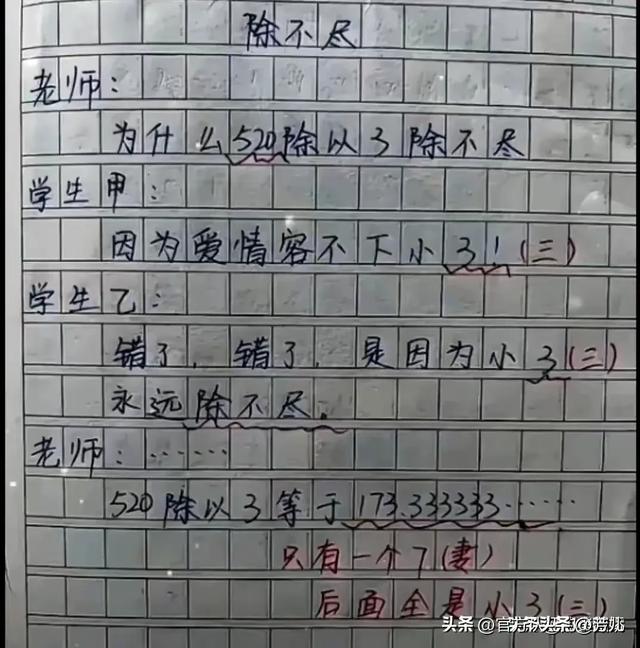 除不尽
老师：
为什么520除以3除不尽
学生甲：
因为爱情容不下小3！(三)
学生乙：
错了，错了，是因为小3(三)
永远除不尽。
老师：……
520除以3等于173.333333……
只有一个7(妻)
后面全是小3(三)
头条 @
头条 @